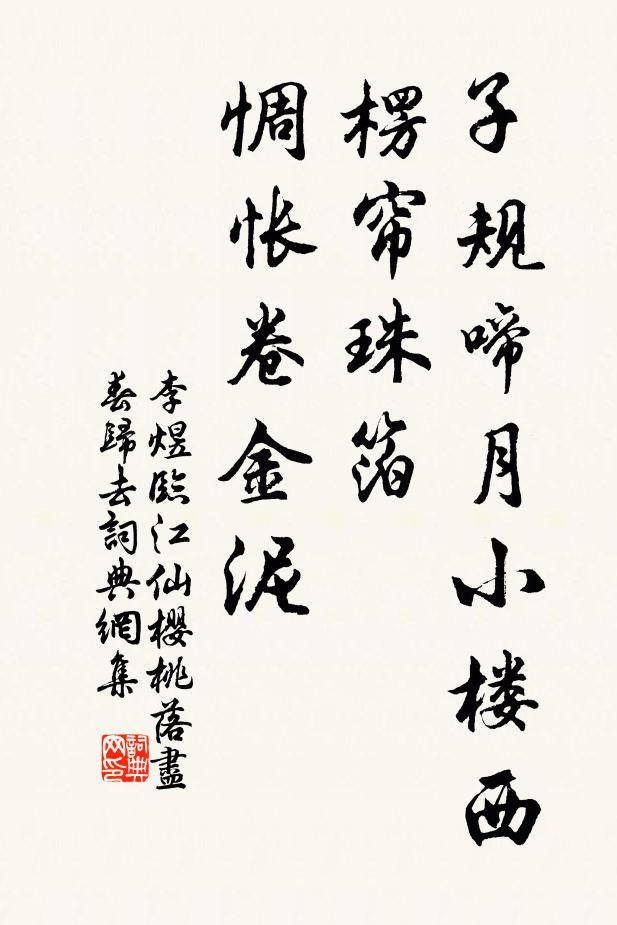 子规啼月小楼西
楞帘珠箔
惆怅卷金泥
李煜臨江仙櫻桃落盡
春歸去詞典網集
詞典
网印